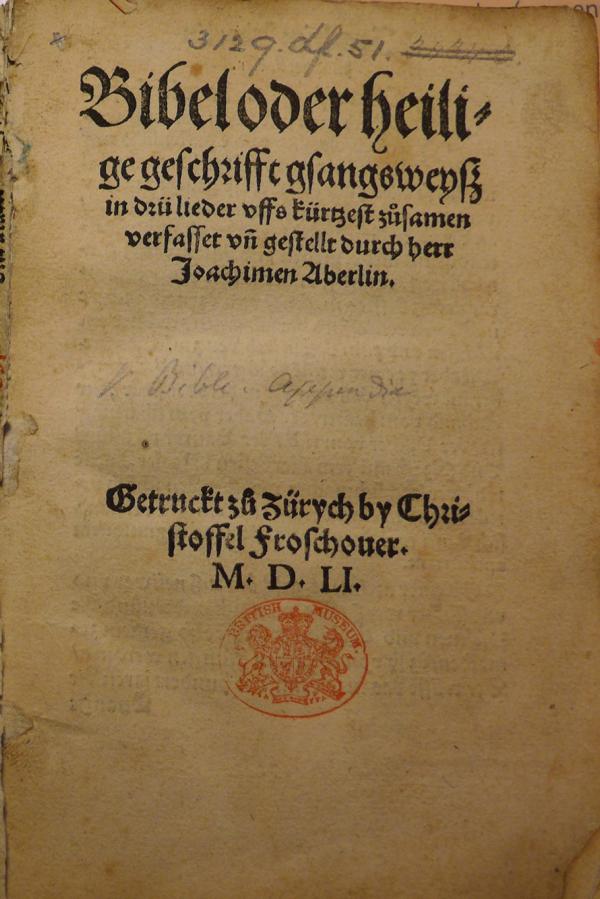 3129.df.51.
Bibel oder heili-
ge geschrifft gsangsweyß
in drü lieder vffs kürtzest zůsamen
verfasset vñ gestellt durch herr
Joachimen Aberlin.
V. Bible. Appendix
Getruckt zů Zürych by Chri-
stoffel Froschouer.
M. D. LI.
BRITISH MUSEUM